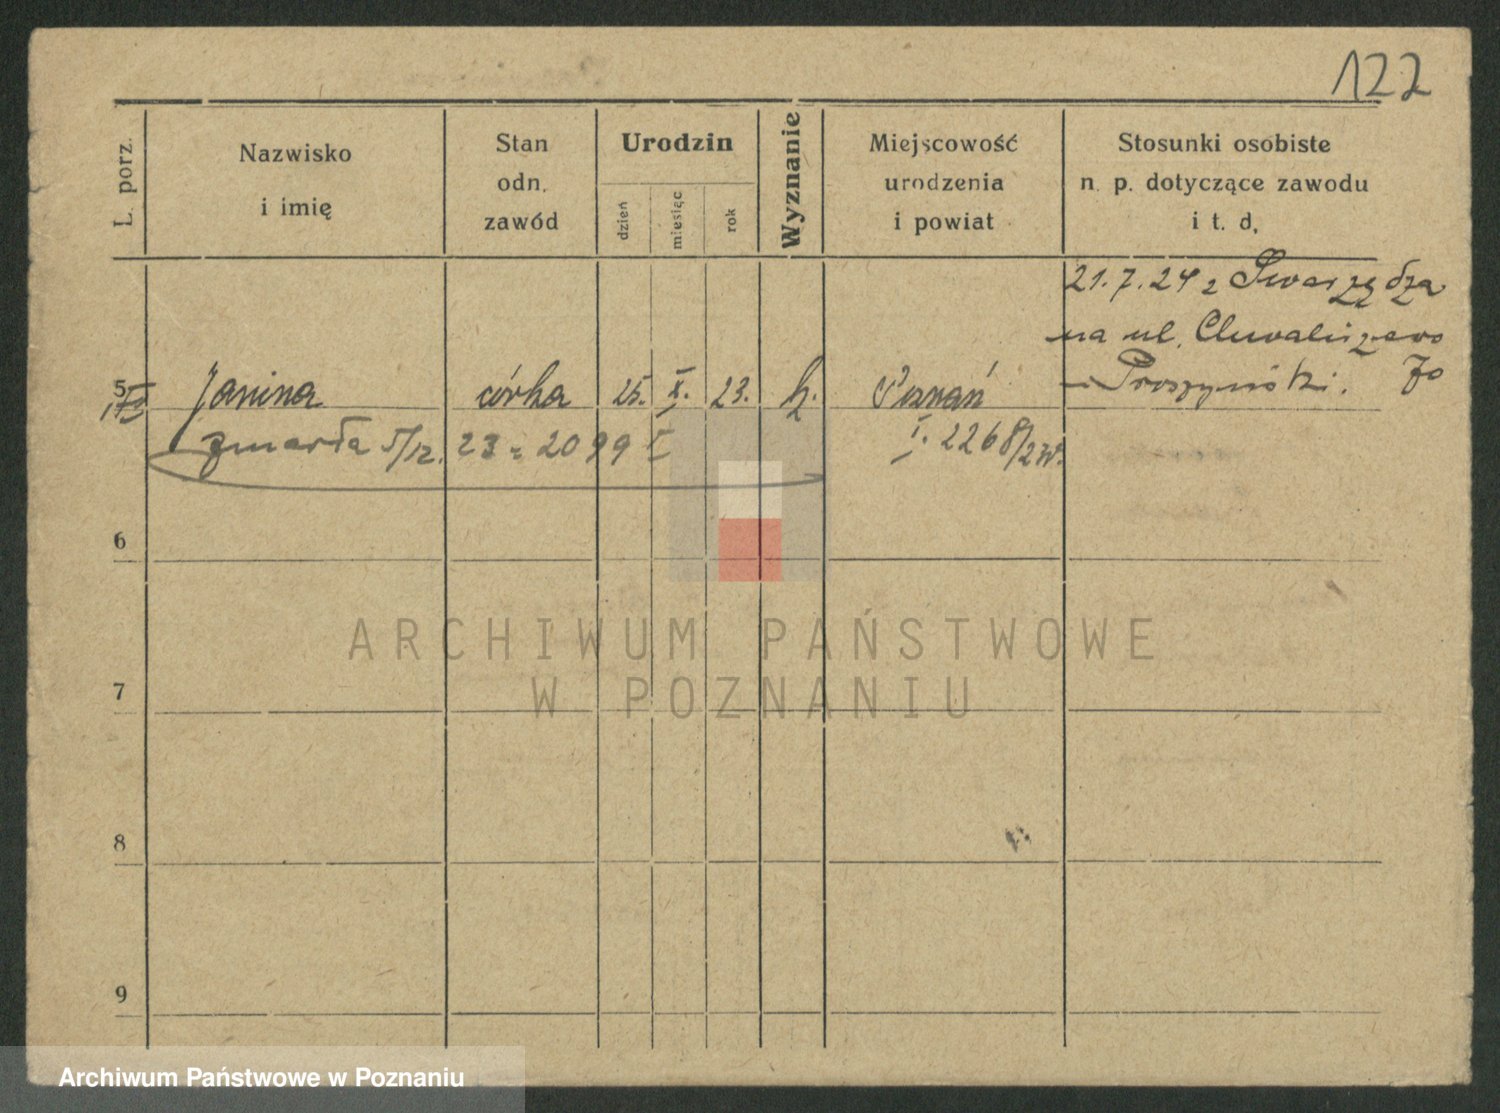 122
L. porz.
Nazwisko
i imię
Stan
odn.
zawód
Urodzin
dzień
miesiąc
rok
Wyznanie
Miejscowość
urodzenia
i powiat
Stosunki osobiste
n. p. dotyczące zawodu
i t. d.
21.7.24 z Swarzędza
na ul.
5 Janina córka 25. X. 23. Poznań
zmarła 5/12. 23 = 2099 I
I. 2268/23
6
7
8
9
ARCHIWUM PAŃSTWOWE
W POZNANIU
Archiwum Państwowe w Poznaniu